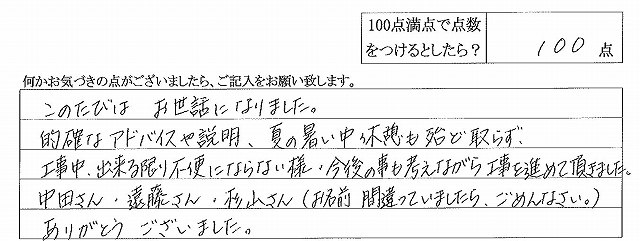 100点満点で点数
をつけるとしたら？
100 点
何かお気づきの点がございましたら、ご記入をお願い致します。
このたびは お世話になりました。
的確なアドバイスや説明、夏の暑い中休憩も殆ど取らず、
工事中、出来る限り不便にならない様・今後の事も考えながら工事を進めて頂きました。
中田さん・遠藤さん・杉山さん（お名前 間違っていましたら、ごめんなさい。）
ありがとう ございました。